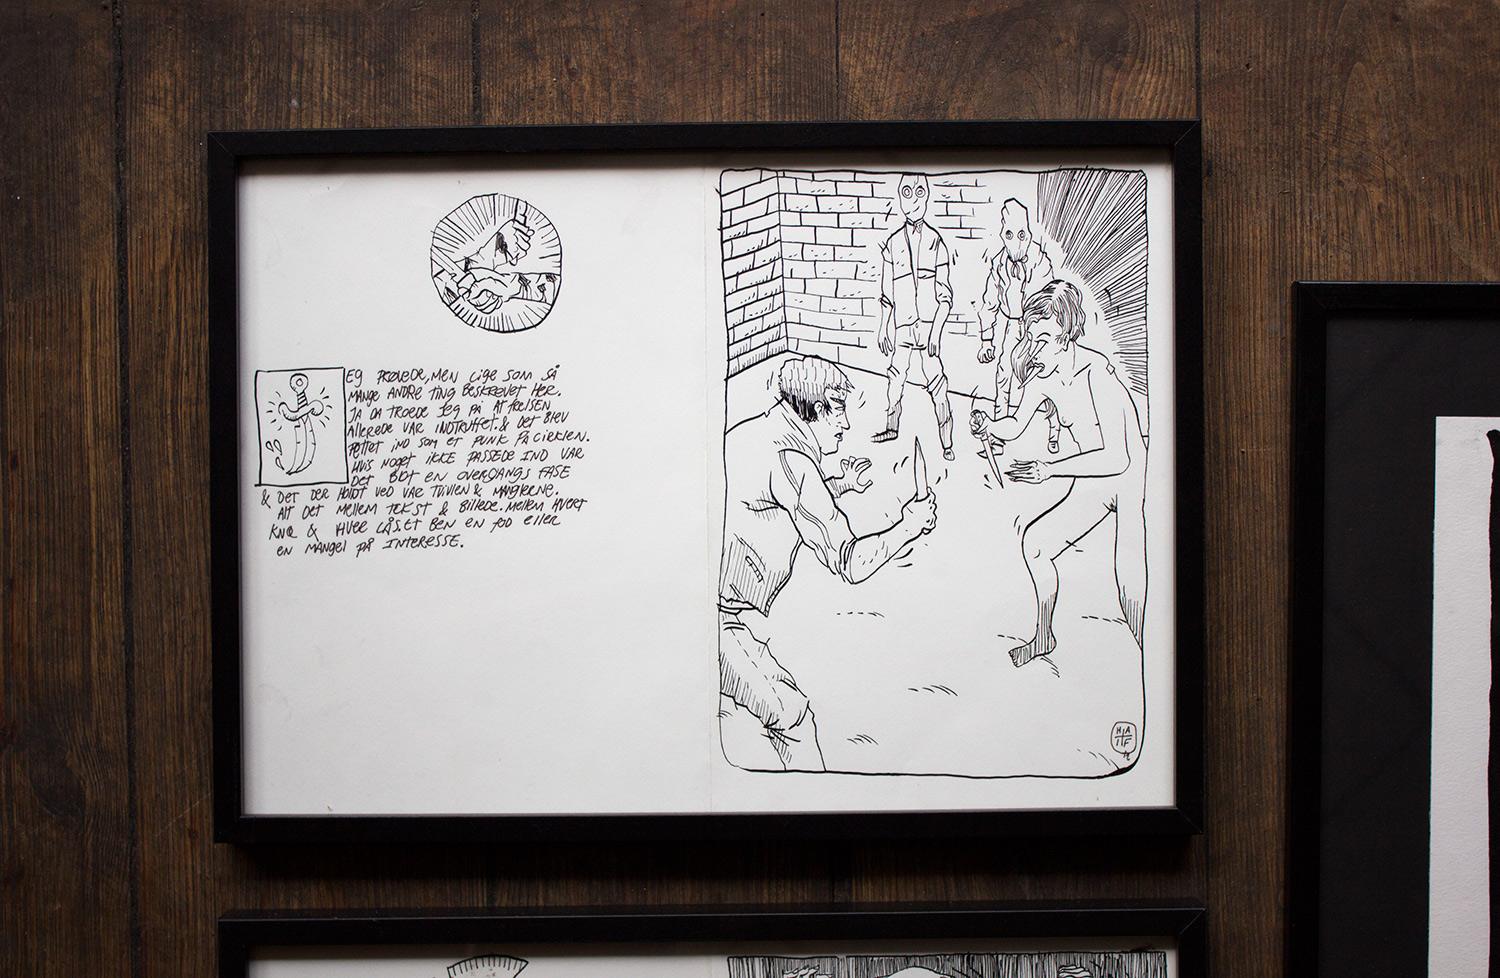 EG PRØVEDE, MEN LIGE SOM SÅ
MANGE ANDRE TING BESKREVET HER.
JA DA TROEDE JEG PÅ AT FRELSEN
ALLEREDE VAR INDTRUFFET. & DET BLEV
PUTTET IND SOM ET PUNK PÅ CIRKLEN.
HVIS NOGET IKKE PASSEDE IND VAR
DET BLOT EN OVERGANGS FASE
& DET DER HOLDT VED VAR TVIVLEN & MANGLERNE.
ALT DET MELLEM TEKST & BILLEDE. MELLEM HVERT
KNÆ & HVER LÅSET BEN EN FOD ELLER
EN MANGEL PÅ INTERESSE.
HA
IF